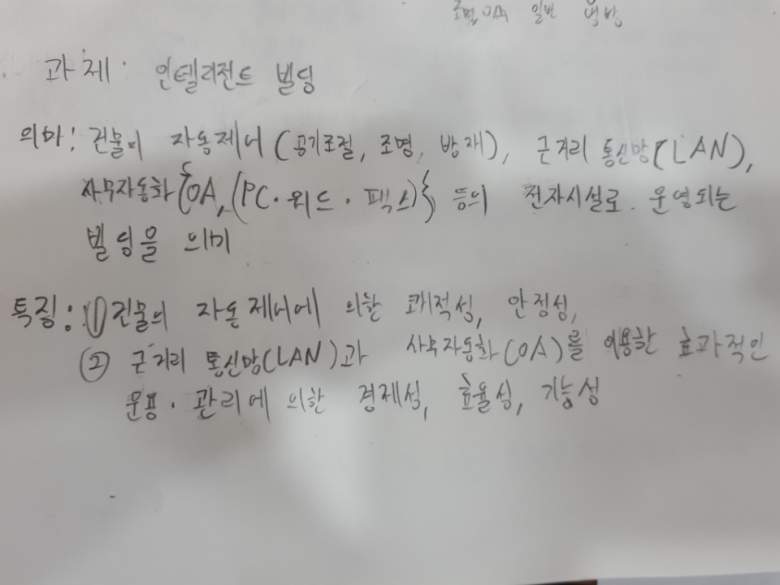 조명, OA 일반
과제 : 인텔리전트 빌딩
의미 : 건물의 자동제어 (공기조절, 조명, 방재), 근거리 통신망(LAN),
사무자동화 {OA, (PC·워드·팩스)} 등의 전자시설로 운영되는
빌딩을 의미
특징 : ① 건물의 자동제어에 의한 쾌적성, 안정성,
② 근거리 통신망(LAN)과 사무자동화(OA)를 이용한 효과적인
운용·관리에 의한 경제성, 효율성, 기능성